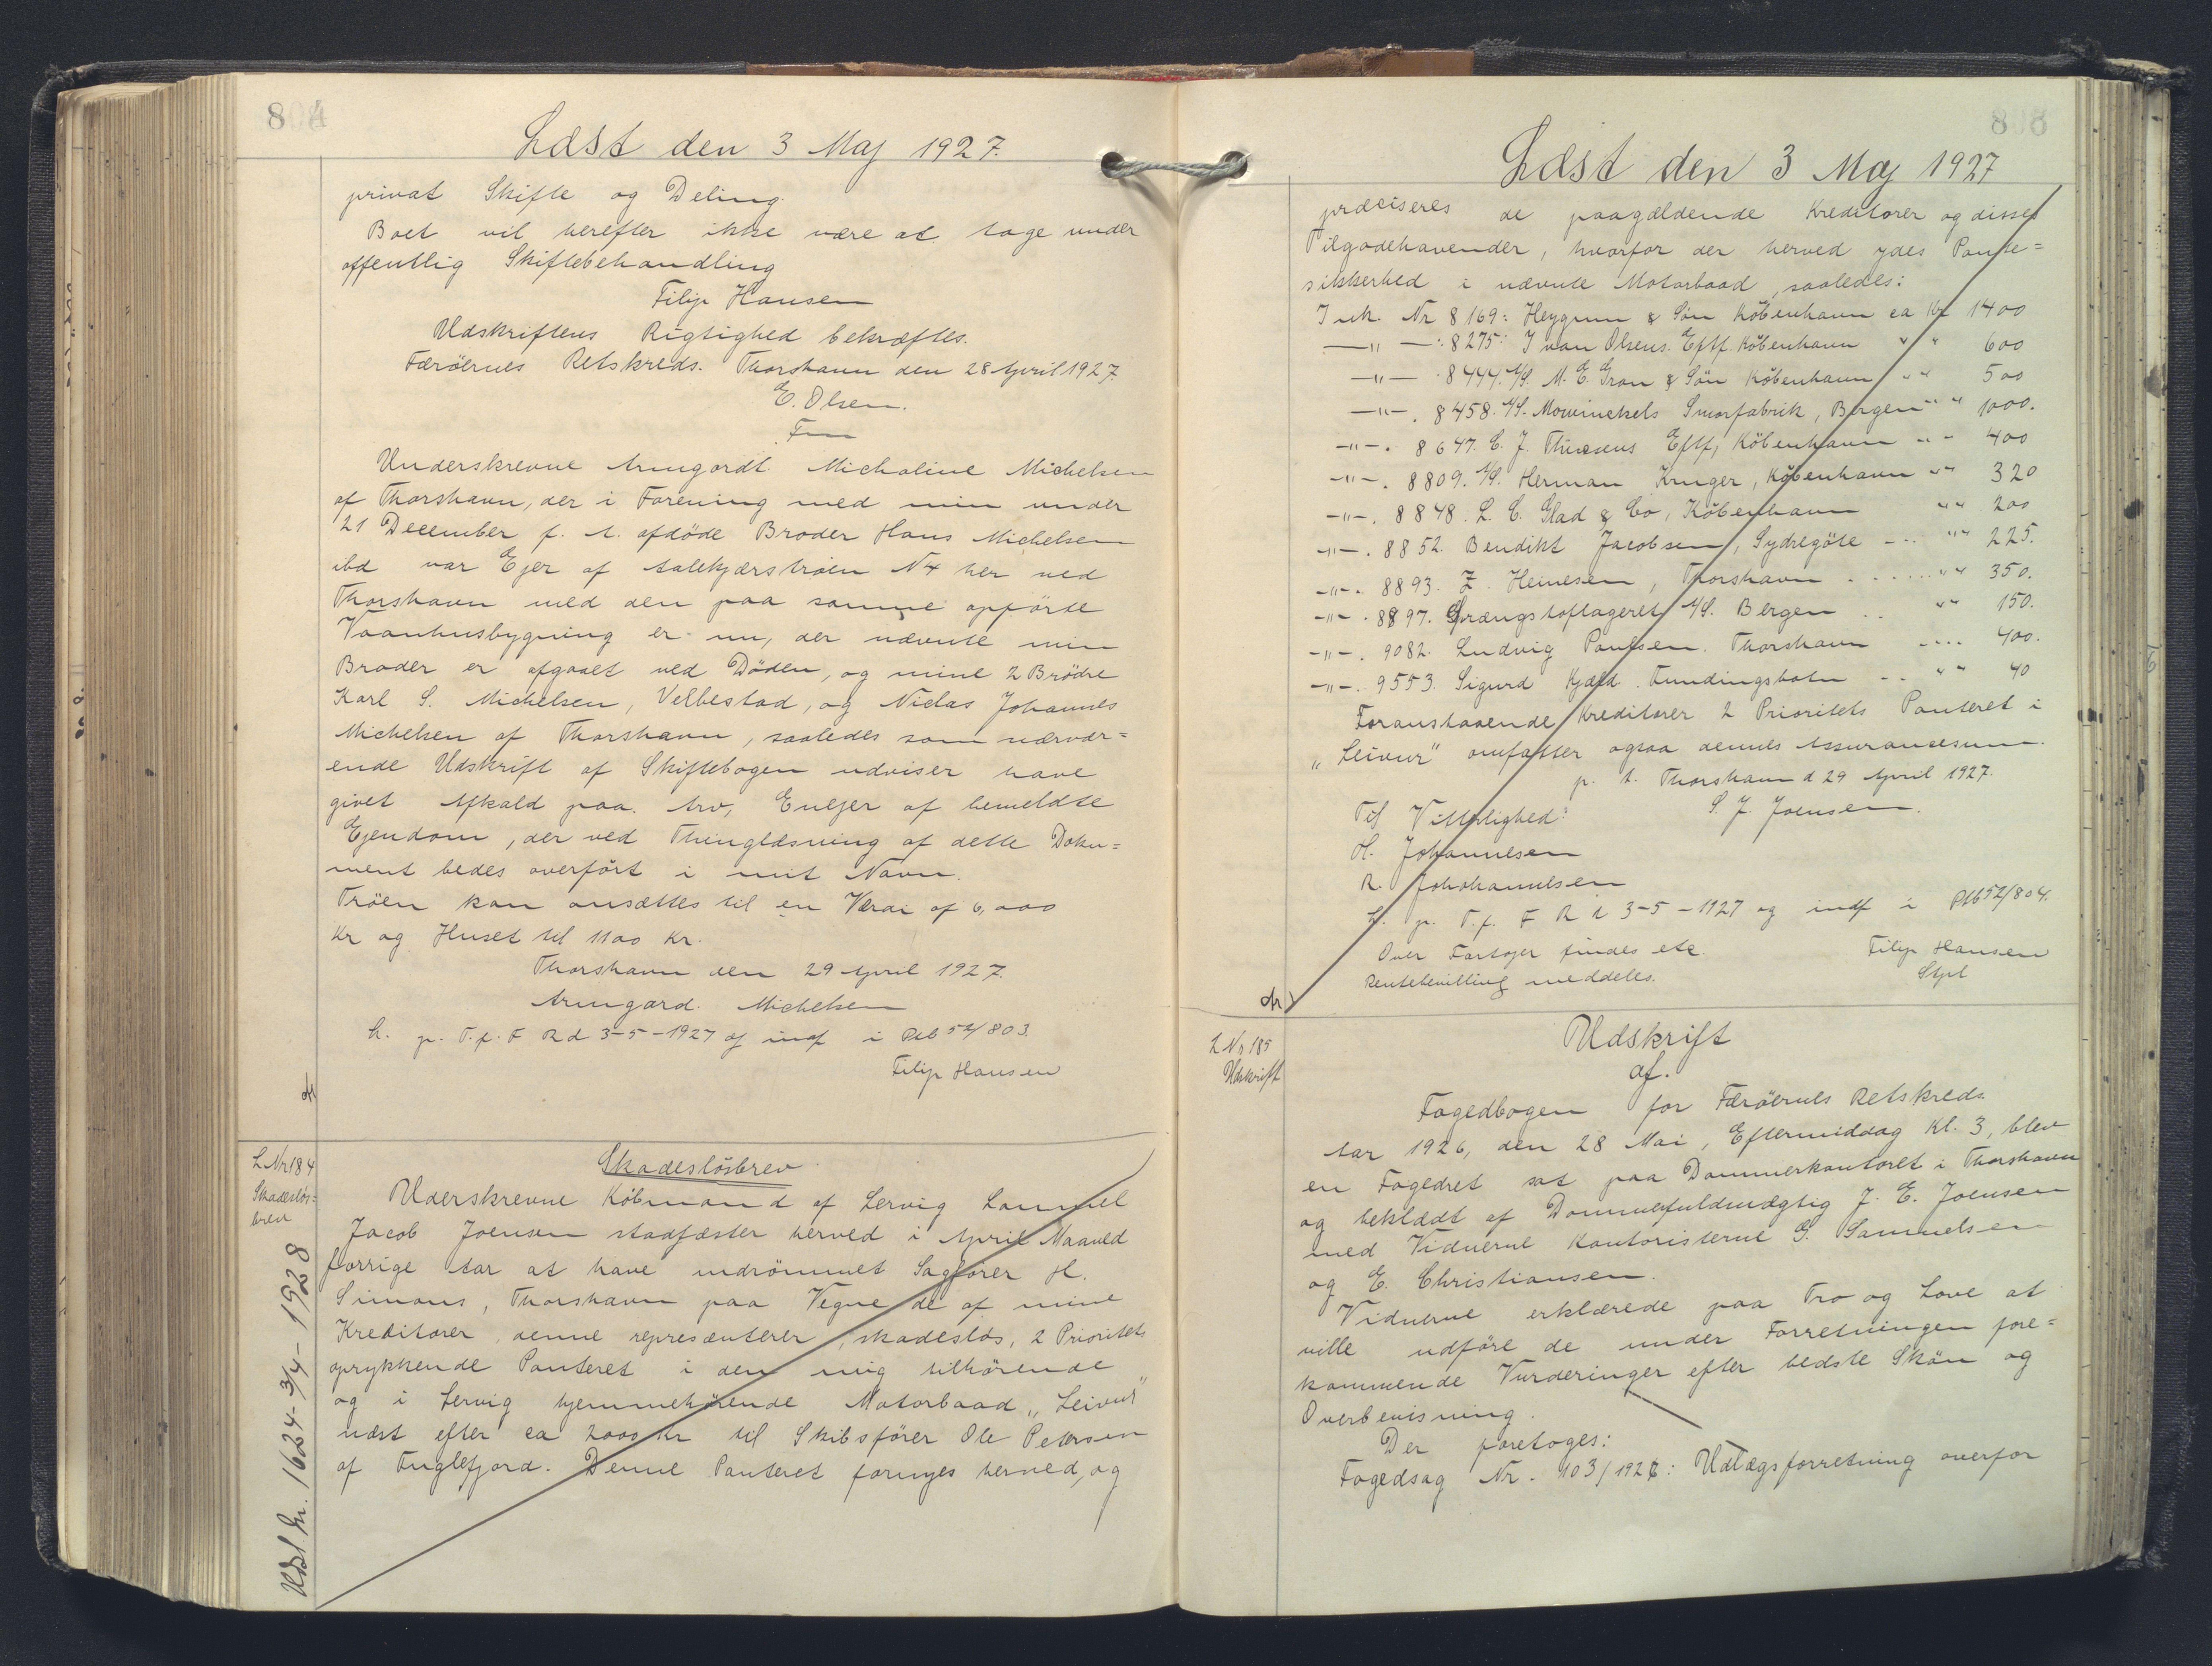 804
Læst den 3 Maj 1927.
privat Skifte og Deling.
Boet vil herefter ikke være at tage under
offentlig Skiftebehandling
Filip Hansen
Udskriftens Rigtighed bekræftes.
Færöernes Retskreds. Thorshavn den 28 April 1927.
E. Olsen.
Fm
Underskrevne Armgardt Micholine Michelsen
af Thorshavn, der i Forening med min under
21 December f. A. afdöde Broder Hans Michelsen
ibd var Ejer af Aalekjærströen N4 her ved
Thorshavn med den paa samme opförte
Vaanhusbygning er nu, der nævnte min
Broder er afgaaet ved Döden, og mine 2 Brödre
Karl S. Michelsen, Velbestad, og Niclas Johannes
Michelsen af Thorshavn, saaledes som nærvær=
ende Udskrift af Skiftebogen udviser have
givet Afkald paa Arv, Eneejer af bemeldte
Ejendom, der ved Thinglæsning af dette Doku=
ment bedes overfört i mit Navn.
Tröen kan ansættes til en Værdi af 6,000
Kr og Huset til 1100 Kr.
Thorshavn den 29 April 1927.
Armgard Michelsen
L. p. T. f. F R d 3-5-1927 og indf i Ptb 52/803.
Filip Hansen
L Nr 184
Skadeslös=
brev
Udsl hr. 1624-3/4-1928
Skadeslösbrev
Uderskrevne Köbmand af Lervig Samuel
Jacob Joensen stadfæster herved i April Maaned
forrige Aar at have indrömmet Sagförer H.
Simons, Thorshavn paa Vegne de af mine
Kreditorer, denne repræsenterer, skadeslös, 2 Prioritets
oprykkende Panteret i den mig tilhörende
og i Lervig hjemmehörende Motorbaad "Leivur"
næst efter ca 2000 Kr til Skibsförer Ole Petersen
af Fuglefjord. Denne Panteret fornyes herved, og
808
Læst den 3 Maj 1927
præciseres de paagældende Kreditorer og disses
Tilgodehavender, hvorfor der herved ydes Pante=
sikkerhed i nævnte Motorbaad, saaledes:
Ink. Nr 8169: Heygum & Sön Köbenhavn ca Kr 1400
—"— · 8275: Ivan Olsens Eftf. Köbenhavn " " 600
—"— · 8444. A/S. M. E. Grøn & Sön Köbenhavn " " 500
—"— . 8458. A/S. Mowinckels Smorfabrik, Bergen " " 1000.
—"— . 8647. C. J. Thuesens Eftf, Köbenhavn " " 400
—"— . 8809. A/S. Herman Kruger, Köbenhavn " " 320
—"— . 8848. L. C. Glad & Co, Köbenhavn " " 200
—"— . 8852. Bendikt Jacobsen, Sydregöte " " 225.
—"— . 8893. Z. Heinesen, Thorshavn " " 350.
—"— . 8897. Grængstoflageret A/S. Bergen " " 150.
—"— . 9082. Ludvig Poulsen. Thorshavn " " 400.
—"— . 9553. Sigurd Kjæld. Fundingsbotn " " 40
Foranstaaende Kreditorer 2 Prioritets Panteret i
"Leivur" omfatter ogsaa dennes Assurancesum.
p. t. Thorshavn d 29 April 1927.
Til Vitterlighed: S. J. Joensen.
H. Johannesen
R. Johohannesen
L. p. T. f. F R d 3-5-1927 og indf i Ptb 52/804.
Over Fartojer findes etc. Filip Hansen
Rentebevilling meddeles. Stpl
L Nr 185
Udskrift
Udskrift
af.
Fogedbogen for Færöernes Retskreds.
Aar 1926, den 28 Mai, Eftermiddag Kl. 3, blev
en Fogedret sat paa Dommerkontoret i Thorshavn
og beklædt af Dommerfuldmægtig J. E. Joensen
med Vidnerne Kontoristerne S. Samuelsen
og E. Christiansen.
Vidnerne erklærede paa Tro og Love at
ville udföre de under Forretningen fore=
kommende Vurderinger efter bedste Skön og
Overbevisning.
Der foretoges:
Fogedsag Nr. 103/1926: Udlægsforretning overfor